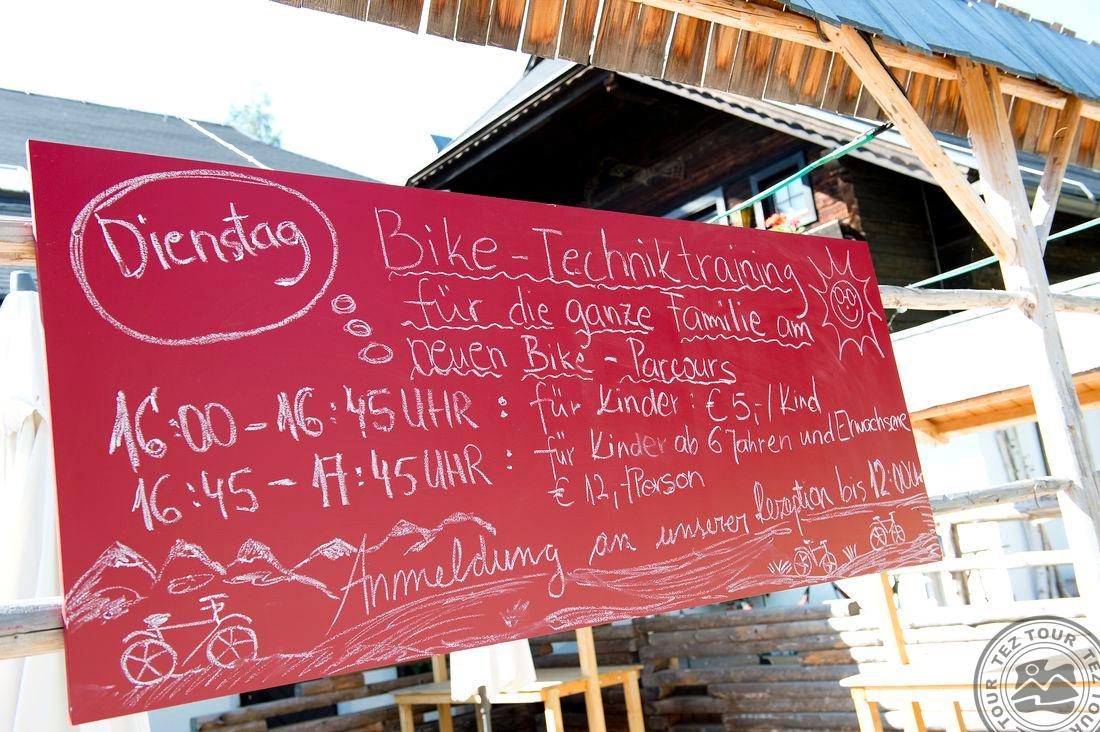 Dienstag
Bike-Techniktraining
für die ganze Familie am
neuen Bike-Parcours
16:00-16:45 UHR : für Kinder : € 5,-/Kind
16:45-17:45 UHR : für Kinder ab 6 Jahren und Erwachsene
€ 12,-/Person
Anmeldung an unserer Rezeption bis 12:00 Uhr
TEZ TOUR TEZ TOUR